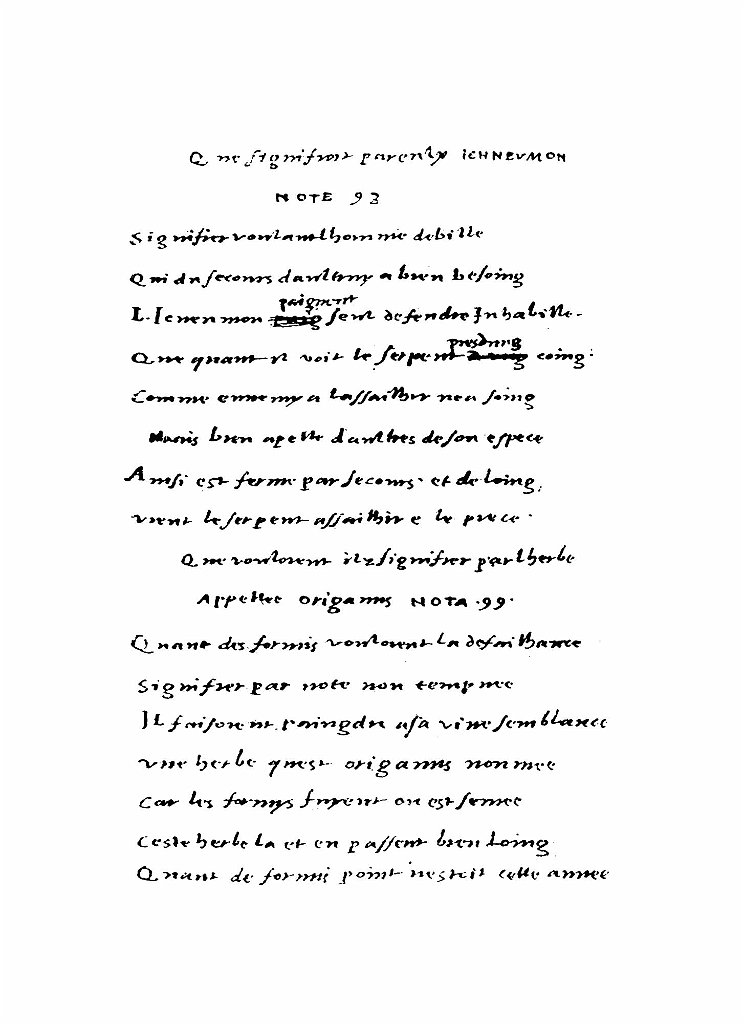 Que signifioit parenlx ICHNEUMON
NOTE 93
Signifier voulant lhomme debille
Qui du secours daultruy a bien besoing
L.Icneumon paigment sent defendre Inhabille.
Que quant il voit le serpent presdung coing:
Comme ennemy a lassaillir nea soing
Mais bien apelle daultres de son espece
Ainsi est ferme par secours. et de loing,
vient le serpent assaillir e le piece.
Que vouloient ilz signifier par lherbe
Appellee origanus NOTA .99.
Quant des formis vouloient la defaillance
Signifier par note non tempmee
IL faisoient. paingdre a sa vive semblance
vne herbe quest origanus nonmee
Car les formys fuyent ou est semee
Ceste herbe la et en passent bien loing
Quant de formi point nestoit celle annee